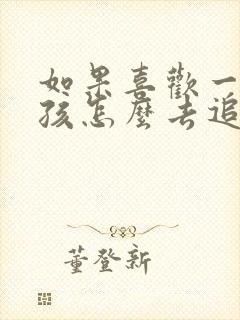 如果喜歡一
孩怎麼去追
董登新